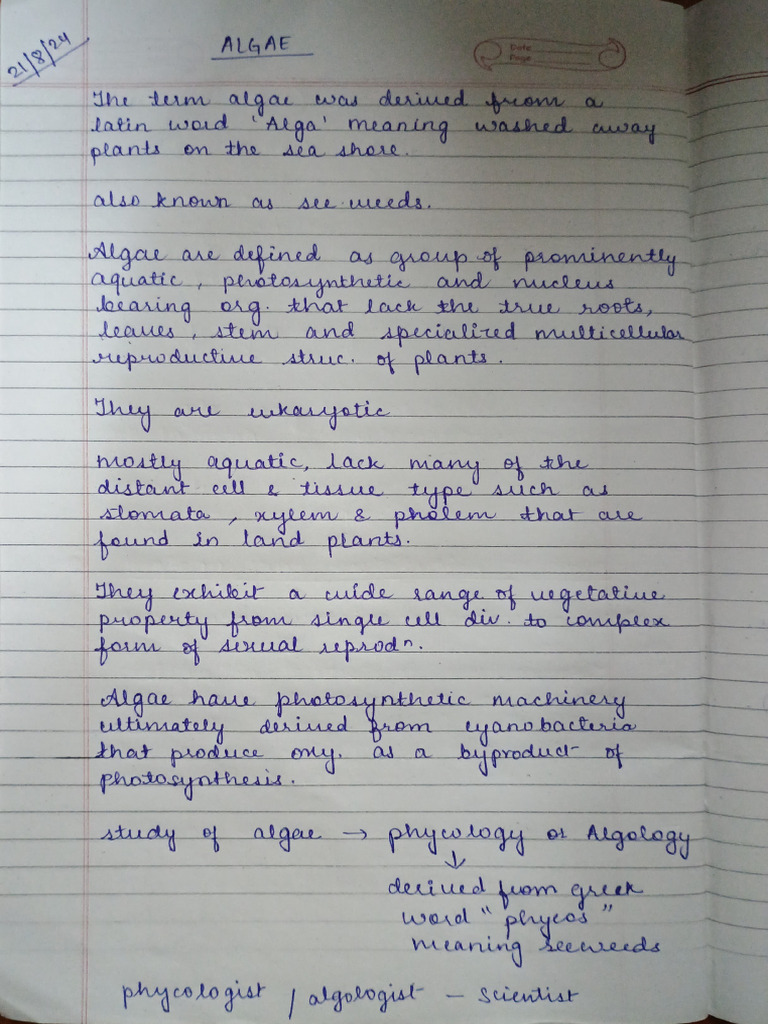 21/8/24
ALGAE
Date
Page
The term algae was derived from a
latin word 'Alga' meaning washed away
plants on the sea shore.
also known as see weeds.
Algae are defined as group of prominently
aquatic, photosynthetic and nucleus
bearing org. that lack the true roots,
leaves, stem and specialized multicellular
reproductive struc. of plants.
They are eukaryotic
mostly aquatic, lack many of the
distant cell & tissue type such as
stomata, xylem & pholem that are
found in land plants.
They exhibit a wide range of vegetative
property from single cell div. to complex
form of sexual reprodⁿ.
Algae have photosynthetic machinery
ultimately derived from cyanobacteria
that produce oxy. as a byproduct of
photosynthesis.
study of algae → phycology or Algology
↓
derived from greek
word "phycos"
meaning seeweeds
phycologist / algologist – Scientist